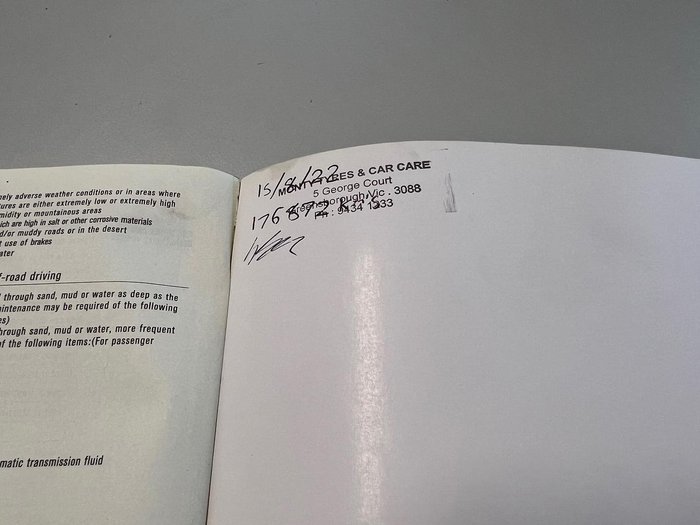 ely adverse weather conditions or in areas where
tures are either extremely low or extremely high
midity or mountainous areas
ich are high in salt or other corrosive materials
d/or muddy roads or in the desert
t use of brakes
ater
f-road driving
through sand, mud or water as deep as the
aintenance may be required of the following
es)
hrough sand, mud or water, more frequent
of the following items:(For passenger
matic transmission fluid
15/ /22
MONTY TYRES & CAR CARE
5 George Court
Greensborough Vic. 3088
176 872 Kms
Ph : 9434 1333